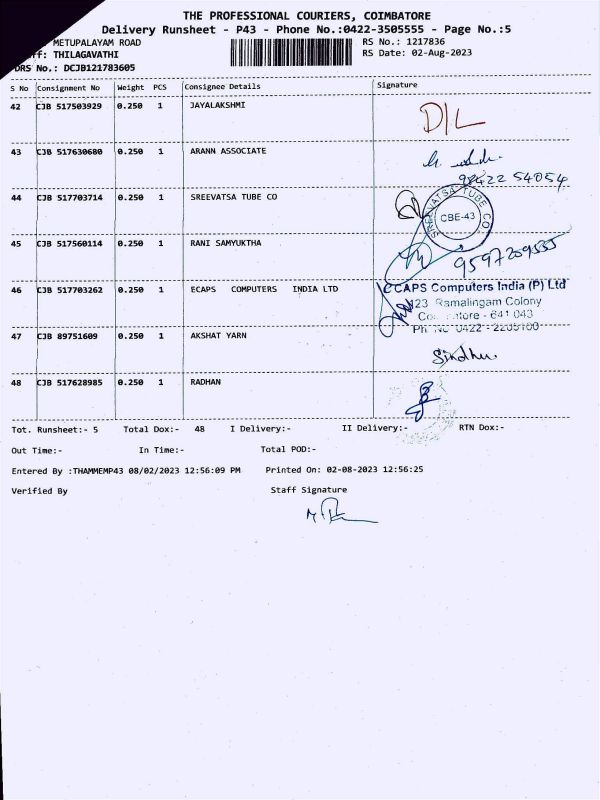 THE PROFESSIONAL COURIERS, COIMBATORE
Delivery Runsheet - P43 - Phone No.:0422-3505555 - Page No.:5
METUPALAYAM ROAD RS No.: 1217836
ff: THILAGAVATHI RS Date: 02-Aug-2023
DRS No.: DCJB121783605
S No Consignment No Weight PCS Consignee Details Signature
42 CJB 517503929 0.250 1 JAYALAKSHMI D/L
43 CJB 517630680 0.250 1 ARANN ASSOCIATE
98422 54054
44 CJB 517703714 0.250 1 SREEVATSA TUBE CO SREEVATSA TUBE CO. CBE-43
45 CJB 517560114 0.250 1 RANI SAMYUKTHA 9597209535
46 CJB 517703262 0.250 1 ECAPS COMPUTERS INDIA LTD CAPS Computers India (P) Ltd
123 Ramalingam Colony
- 641 043
Ph 0422 - 2205100
47 CJB 89751609 0.250 1 AKSHAT YARN Sindhu.
48 CJB 517628985 0.250 1 RADHAN
Tot. Runsheet:- 5 Total Dox:- 48 I Delivery:- II Delivery:- RTN Dox:-
Out Time:- In Time:- Total POD:-
Entered By :THAMMEMP43 08/02/2023 12:56:09 PM Printed On: 02-08-2023 12:56:25
Verified By Staff Signature